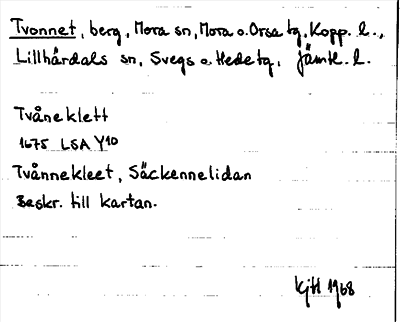 Tvonnet, berg, Mora sn, Mora o. Orsa tg, Kopp. l.,
Lillhärdals sn, Svegs o. Hede tg, Jämtl. l.
Tvåneklett
1675 LSA Y10
Tvånnekleet, Säckennelidan
Beskr. till kartan.
1968